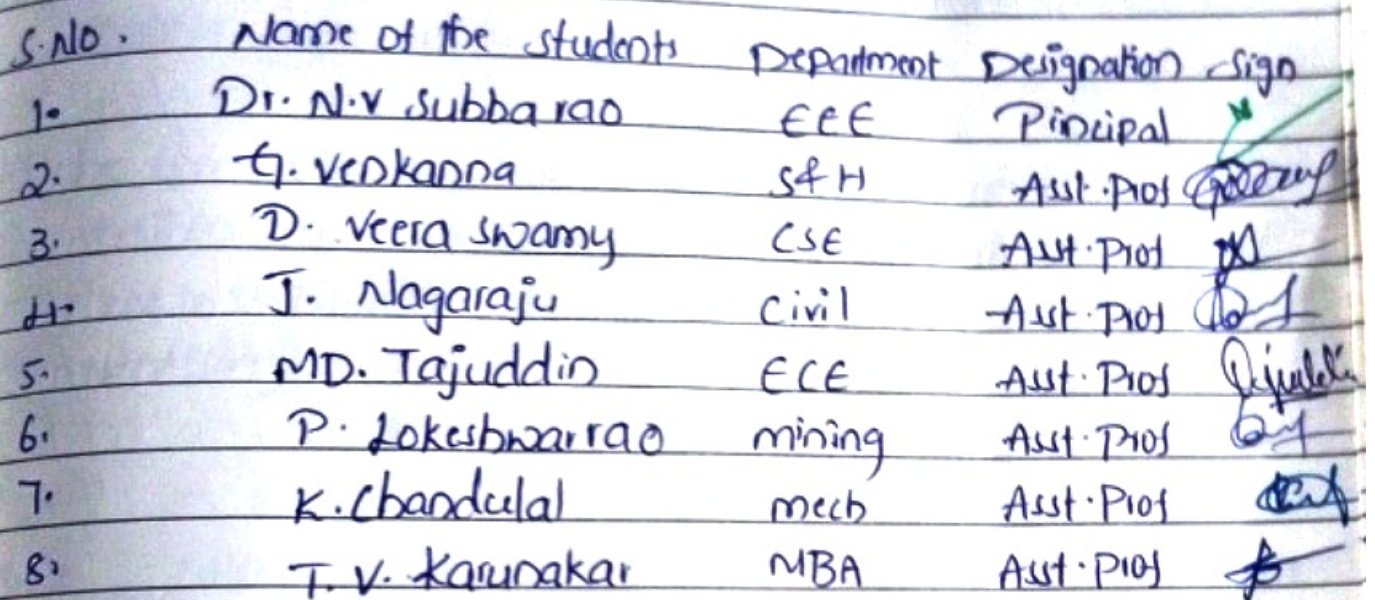 S.No. Name of the students Department Designation Sign
1. Dr. N.V Subba rao ECE Pincipal
2. G. Venkanna S&H Asst.Prof
3. D. Veera swamy CSE Asst.Prof
4. J. Nagaraju Civil Asst.Prof
5. MD. Tajuddin ECE Asst.Prof
6. P. Lokeshwarrao mining Asst.Prof
7. K.Chandulal mech Asst.Prof
8. T.V. Karunakar MBA Asst.Prof